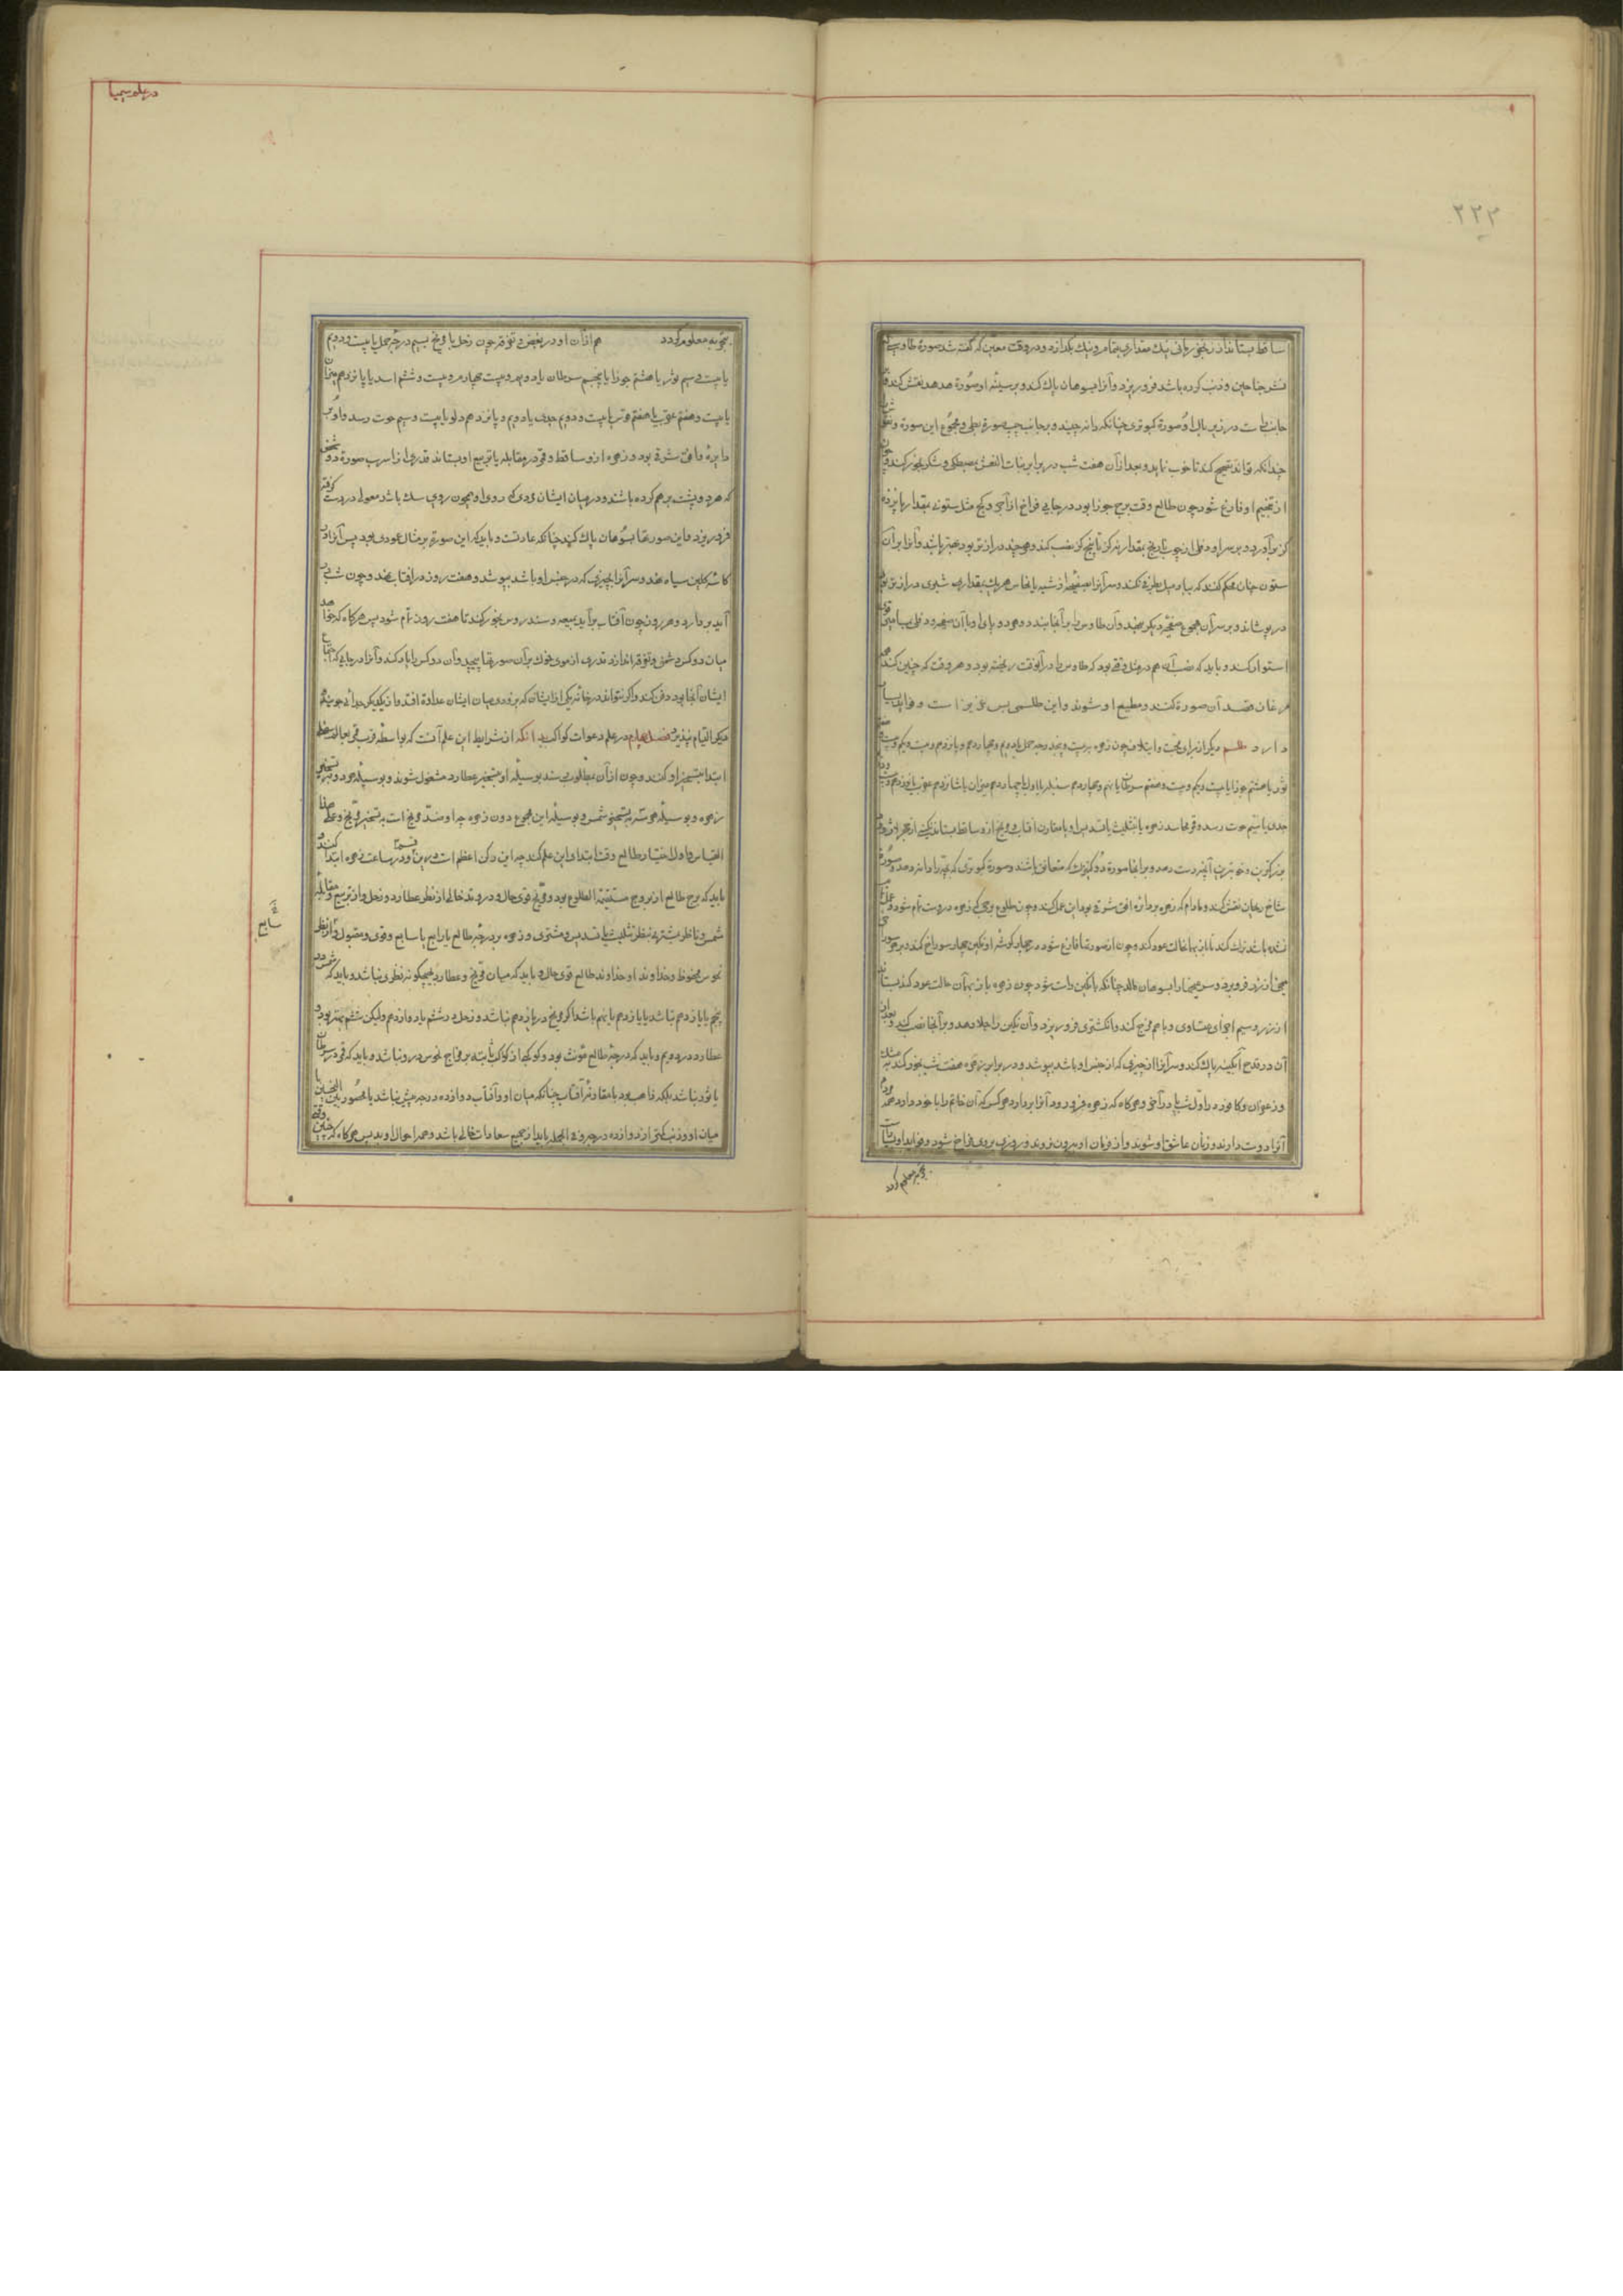 ٢٢٣
ساقط بستاند از ریخ رمانی نیک مقداری تمام و نیک بگدازد و در وقت معین که گفته شد صورة طاوسی
نشر جناحین و ذنب کرده باشد فرو ریزد و آنرا بسوهان پاک کند و بر سینه او صورة هدهد نقش کند
راست در زیر بال او صورة کبوتری چنانکه دانه چیند و بر جانب چپ صورة بطی و مجموع این صورة
چندانکه تواند تصحیح کند تا خوب نماید و بعد از آن هفت شب در برابر بنات النعش بمصطکی و شکر بخور کند و چون
از تنجیم او فارغ شود چون طالع وقت برج جوزا بود در جایی فراخ از آجر و گچ مثل ستونی بمقدار پانزده
گز برآورد و بر سر او از چوب بمقدار نه گز تا پنج گز نصب کند و هر چند درازتر بود بهتر باشد و آنرا بر آن
ستون چنان محکم کند که بباد میل نکند و سر آنرا از شبه یا نحاس هر یک بمقداری شبری دراز
در پوشاند و بر سر آن مجموع صفحه دیگر نهد و آن طاوس را بر آنجا بندد و هر دو پای او با آن صفحه
استوار کند و باید که نصب آن هم در مثل وقتی بود که طاوس را در آنوقت ریخته بود و هر وقت که چنین کند همه
مرغان قصد آن صورة کنند و مطیع او شوند و این طلسمی بس عزیز است و فواید بسیار
دارد طلسم دیگر از برای محبت و ایتلاف چون زهره به بیست و پنجم درجه حمل یا دوم و چهاردهم و پانزدهم و بیست و یکم
ثور یا هشتم جوزا یا بیست و یکم و بیست و هفتم سرطان یا نهم و چهاردهم سنبله یا اول یا چهاردهم میزان یا شانزدهم عقرب یا نوزدهم
جدی یا نیم حوت رسد و قمر نماسد زهره یا بتثلیث یا تسدیس او یا مقارن آفتاب و مریخ ازو ساقط بستاند
بزرگترین و خوبترین آنچه دست دهد و بر آنجا صورة دو کبوتر که متعانق باشند و صورة کبوتری که بچه را دانه دهد و صورة
شاخ ریحان نقش کند و مادام که زهره بر دایره افق شرقی بود این عمل کند و چون طلوع
نشده باشد ترک کند تا باز بهمان حالت عود کند و چون از صورتها فارغ شود در چهار گوشه او نگین چهار سوراخ کند و بر هر
میخی از زر فرو برد و سر میخها را بسوهان بمالد چنانکه با نگین راست شود چون زهره باز بهمان حالت عود کند بستاند
از زر و سیم اجزای متساوی و با هم مزج کند و انگشتری فرو ریزد و آن نگین را جلا دهد و بر آنجا نصب کند و بعد از
آن در قدح آبگینه پاک کند و سر آنرا از چیزی که از جنس او باشد بپوشد و در برابر زهره هفت شب بخور کند بمشک
و زعفران و کافور در اول شب یا در آخر و هرگاه که زهره فرو رود آنرا بردارد هر کس که آن خاتم را با خود دارد مردم
آنرا دوست دارند و زنان عاشق او شوند و از فرمان او بیرون نروند و روزی بروی فراخ شود و فواید او بسیارست
بتجربه معلوم گردد
در علم سیمیا
بتجربه معلوم گردد هم از آن او در بغض و تفرقه چون زحل یا مریخ بسیم درجه حمل یا بیست و دویم
یا بیست و سیم ثور یا هشتم جوزا یا پنجم سرطان یا دویم و بیست چهارم و بیست و ششم اسد یا پانزدهم میزان
یا بیست و هفتم عقرب یا هفتم قوس یا بیست و دویم جدی یا دویم و پانزدهم دلو یا بیست و سیم حوت رسد و او بر
دایره افق شرقی بود و زهره ازو ساقط و قمر در مقابله یا تربیع او بستاند قدری از اسرب صورة دو شخص
که هر دو پشت بر هم کرده باشند و در میان ایشان مردی که روی او همچون روی سک باشد معولی در دست گرفته
فرو ریزد و این صورتها بسوهان پاک کند چنانکه عادتست و باید که این صورة بر مثال عودی بود پس آنرا در
کاسه گلین سیاه نهد و سر آنرا بچیزی که در جنس او باشد بپوشد و هفت روز در آفتاب نهد و چون شب در
آید بردارد و هر روز چون آفتاب برآید بمیعه و سندروس بخور کند تا هفت روز تمام شود پس هرگاه که خواهد
میان دو کس دشمنی و تفرقه اندازد قدری از موی خوک بر آن صورتها پیچد و آن دو کس را یاد کند و آنرا در جایی که
ایشان آنجا بود دفن کند و اگر نتواند در خانه یکی از ایشان که بزودی میان ایشان عداوة افتد و از یکدیگر جدایی جویند
دیگر التیام نپذیرد فصل چهارم در علم دعوات کواکب بدانکه از شرایط این علم آنست که بواسطه قرب قمر بعالم سفلی
ابتدا بتسخیر او کنند و چون از آن بمطلوب رسند بوسیله او بتسخیر عطارد مشغول شوند و بوسیله هر دو بتسخیر
زهره و بوسیله هر سه بتسخیر شمس و بوسیله این مجموع دون زهره چه او ضد مریخ است بتسخیر مریخ و علی هذا
القیاس و اول اختیار طالع وقت ابتدای این علم کند چه این رکن اعظم است درین و در ساعت زهره ابتدا کنند
باید که برج طالع از بروج مستقیمة الطلوع بود و مریخ قوی حال و در وتد خالی از نظر عطارد و زحل و از تربیع و مقابله
شمس و ناظر بمشتری بنظر تثلیث یا تسدیس و مشتری و زهره بر درجه طالع یا رابع یا سابع و قوی و مقبول و از نظر
نحوس محفوظ و خداوند او خداوند طالع قوی حال و باید که میان مریخ و عطارد هیچگونه نظری نباشد و باید که شمس در
پنجم یا یازدهم نباشد یا یازدهم یا نهم باشد اگر مریخ در یازدهم نباشد و زحل در ششم یا دوازدهم ولیکن ششم بهتر بود و
عطارد در دویم و باید که درجه طالع مؤنث بود و کوکبی از کواکب ثابته بر مزاج نحوس درو نباشد و باید که قمر در سرطان
یا ثور نباشد بلکه ذاهب بود با مقارنه آفتاب چنانکه میان او و آفتاب دوازده درجه بیش نباشد یا محصور بین النحسین یا
میان او و ذنب کمتر از دوازده درجه و فی الجمله باید از جمیع سعادات خالی باشد و همه احوال او بد پس هرگاه که چنین وقت
سابع